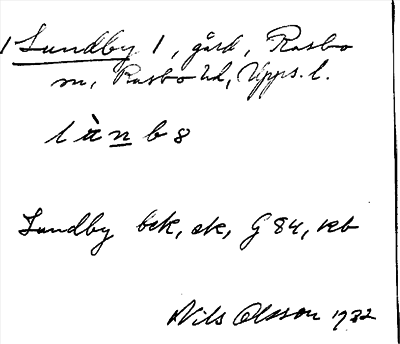 1 Lundby 1, gård, Rasbo
sn, Rasbo hd, Upps. l.
l à n b 8
Lundby bek, ek, G 84, kb
Nils Olsson 1932